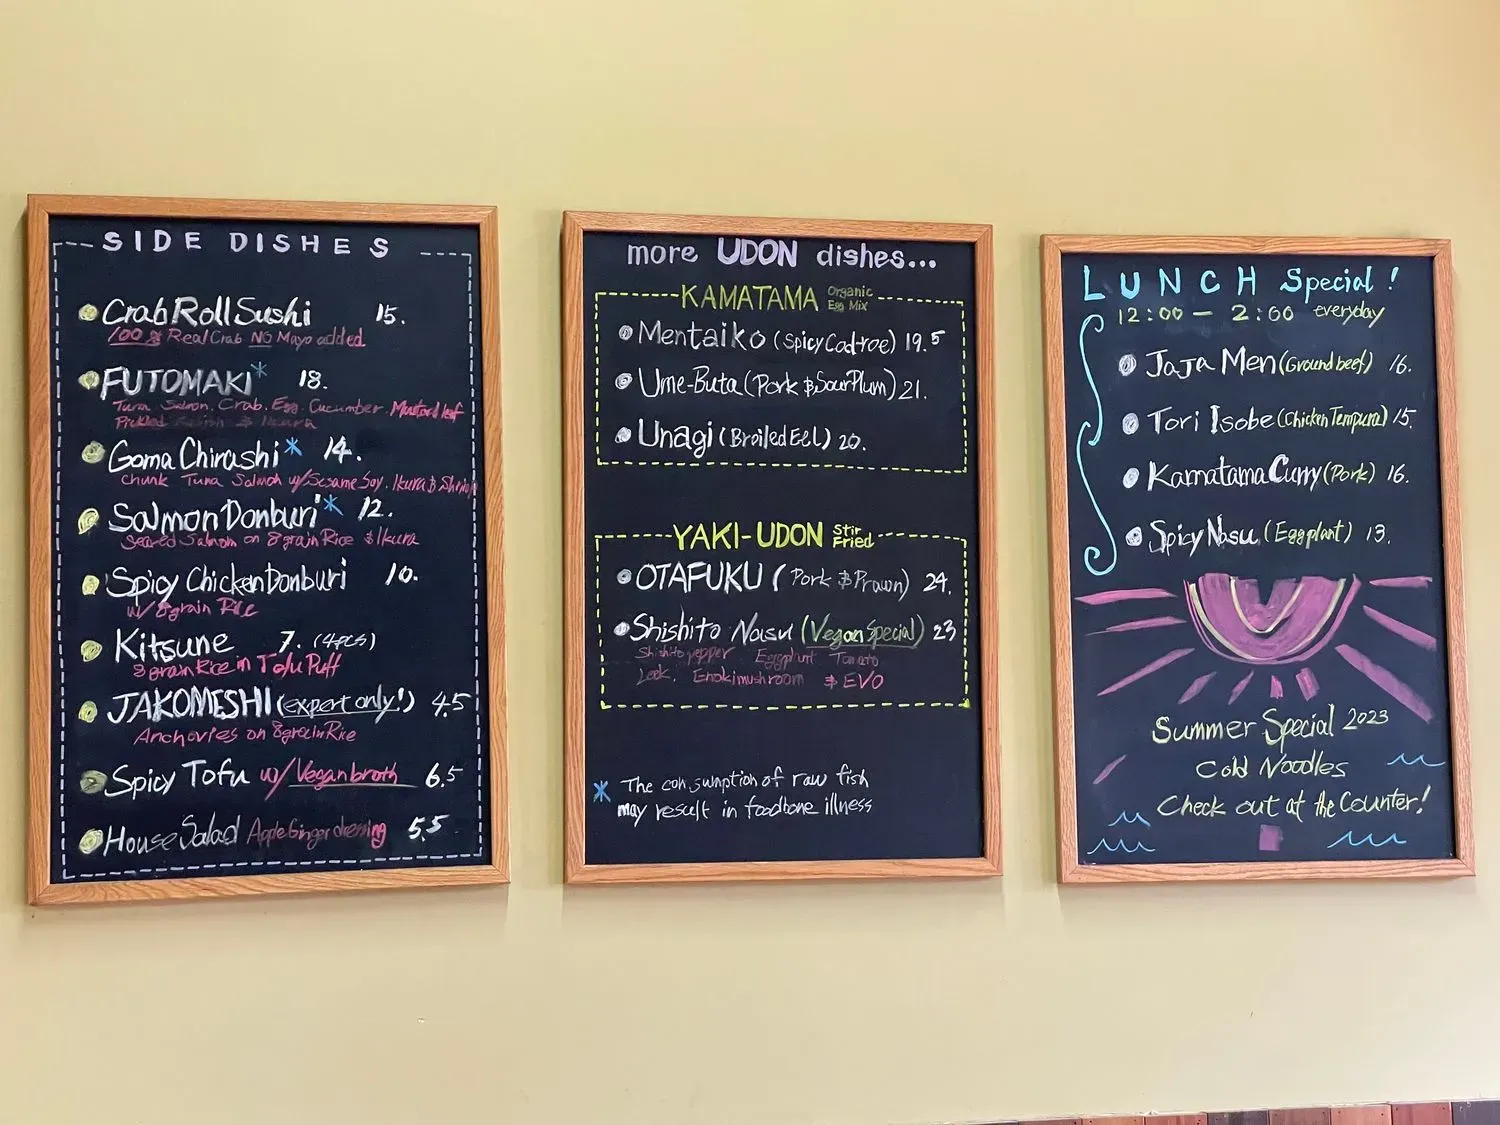 SIDE DISHES
Crab Roll Sushi 15.
100% Real Crab NO Mayo added
FUTOMAKI* 18.
Tuna Salmon. Crab. Egg. Cucumber. Mustard leaf
Pickled & Ikura
Goma Chirashi* 14.
Chunk Tuna Salmon w/Sesame Soy. Ikura &
Salmon Donburi* 12.
Seared Salmon on 8 grain Rice & Ikura
Spicy Chicken Donburi 10.
w/ 8 grain Rice
Kitsune 7. (4pcs)
8 grain Rice in Tofu Puff
JAKOMESHI (expert only!) 4.5
Anchovies on 8 grain Rice
Spicy Tofu w/ Vegan broth 6.5
House Salad Apple Ginger dressing 5.5
more UDON dishes...
KAMATAMA Organic
Egg Mix
Mentaiko (Spicy Cod-roe) 19.5
Ume-Buta (Pork & Sour Plum) 21.
Unagi (Broiled Eel) 20.
YAKI-UDON Stir
Fried
OTAFUKU (Pork & Prawn) 24.
Shishito Nasu (Vegan Special) 23
Shishito pepper Eggplant Tomato
Leek. Enoki mushroom & EVO
* The consumption of raw fish
may result in foodbone illness
LUNCH Special!
12:00 - 2:00 everyday
JaJa Men (Ground beef) 16.
Tori Isobe (Chicken Tempura) 15.
Kamatama Curry (Pork) 16.
Spicy Nasu (Eggplant) 13.
Summer Special 2023
Cold Noodles
Check out at the Counter!